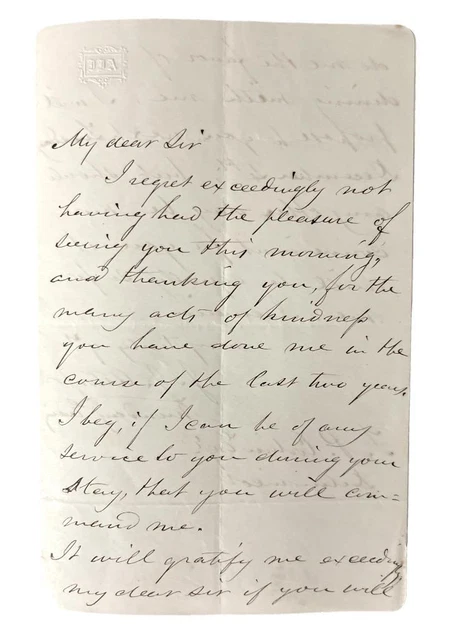 My dear Sir
I regret exceedingly not
having had the pleasure of
seeing you this morning,
and thanking you, for the
many acts of kindness
you have done me in the
course of the last two years.
I beg, if I can be of any
service to you during your
stay, that you will com=
mand me.
It will gratify me exceedingly
my dear sir if you will